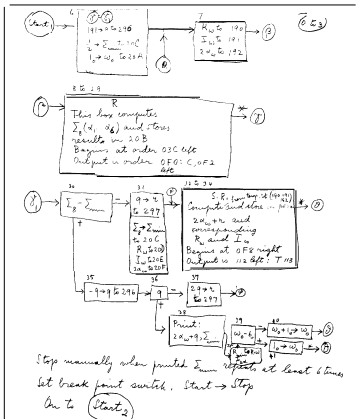 Start₁
191 → 0 to 296
½ → Σmin to 20C
1₀ → ω₀ to 20A
7
R_ω to 190
I_ω to 191
2α_ω to 192
β
8 to 29
R
This box computes
and stores
results in 20B
Begins at order 03C left
Output is order 0F0: C, 0F2
left
γ
30
Σ_B - Σmin
31
q → r
to 297
Σ_B → Σmin
to 20C
R_ω to 20D
I_ω to 20E
2α_ω to 20F
32 to 34
S.R. from
Compute and store in
2α_ω + r and
corresponding
R_ω and I_ω
Begins at 0F2 right
Output is 112 left: T 113
35
-q → q to 296
36
q
37
2q → r
to 297
38
Print:
2α_ω + q, Σmin
39
ω₀ - 1₀
40
ω₀ + 1₀ → ω₀
41
1₀ → ω₀
Stop manually when printed Σmin repeats at least 6 times
Set break point switch. Start → Stop
On to Start₂